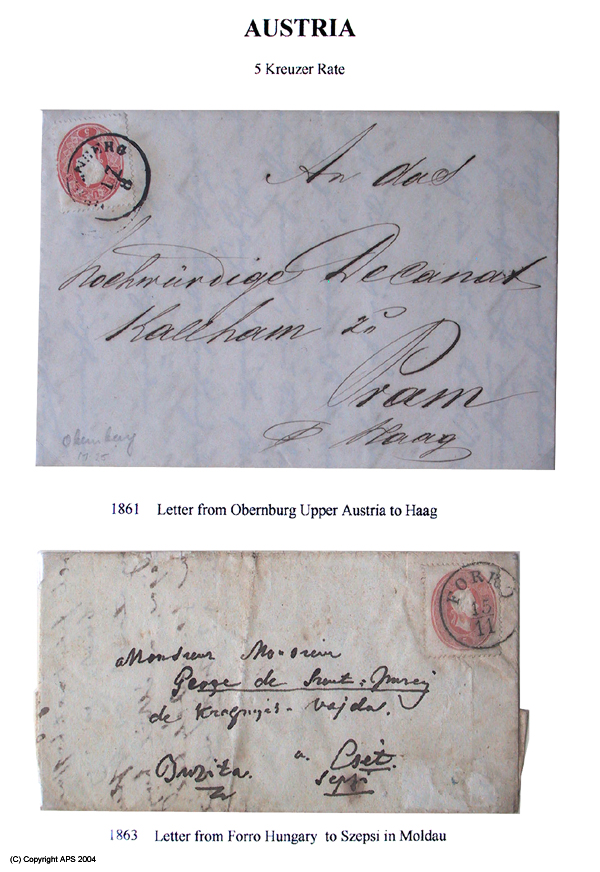 AUSTRIA
5 Kreuzer Rate
An das
hochwürdige Decanat
Kallham zu
Pram
p Haag
Obernberg
1861 Letter from Obernburg Upper Austria to Haag
FORR
15
11
Monsieur Monsieur
George de Szent-Imrey
de Krasznyis-vajda.
Buzita. a. Csét.
Sepsi
1863 Letter from Forro Hungary to Szepsi in Moldau
(C) Copyright APS 2004